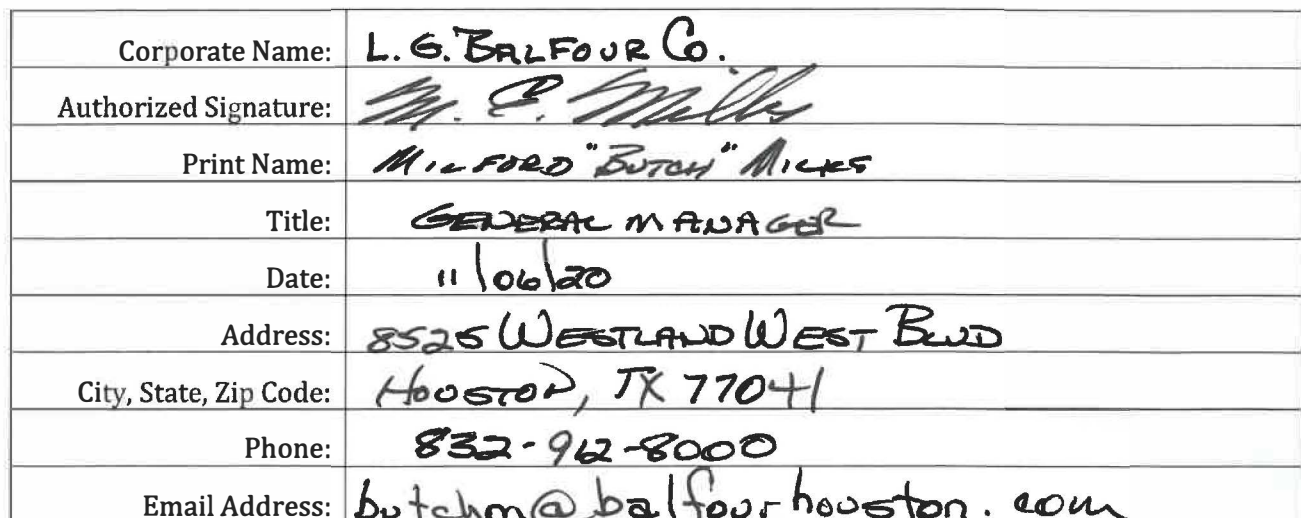 Corporate Name: L.G. BALFOUR CO.
Authorized Signature: M. E. Milks
Print Name: MILFORD "BUTCH" MILKS
Title: GENERAL MANAGER
Date: 11/06/20
Address: 8525 WESTLAND WEST BLVD
City, State, Zip Code: HOUSTON, TX 77041
Phone: 832-962-8000
Email Address: butchm@balfourhouston.com